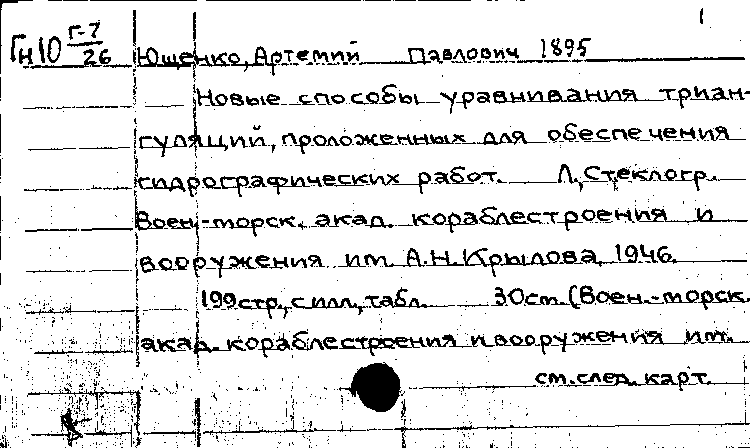 1
Гн10 Г-7/26 Ющенко, Артемий Павлович 1895
Новые способы уравнивания триан-
гуляций, проложенных для обеспечения
гидрографических работ. Л., Стеклогр.
Воен.-морск. акад. кораблестроения и
вооружения им. А.Н. Крылова, 1946.
199 стр., с илл., табл. 30 см. (Воен.-морск.
акад. кораблестроения и вооружения им.
см. след. карт.